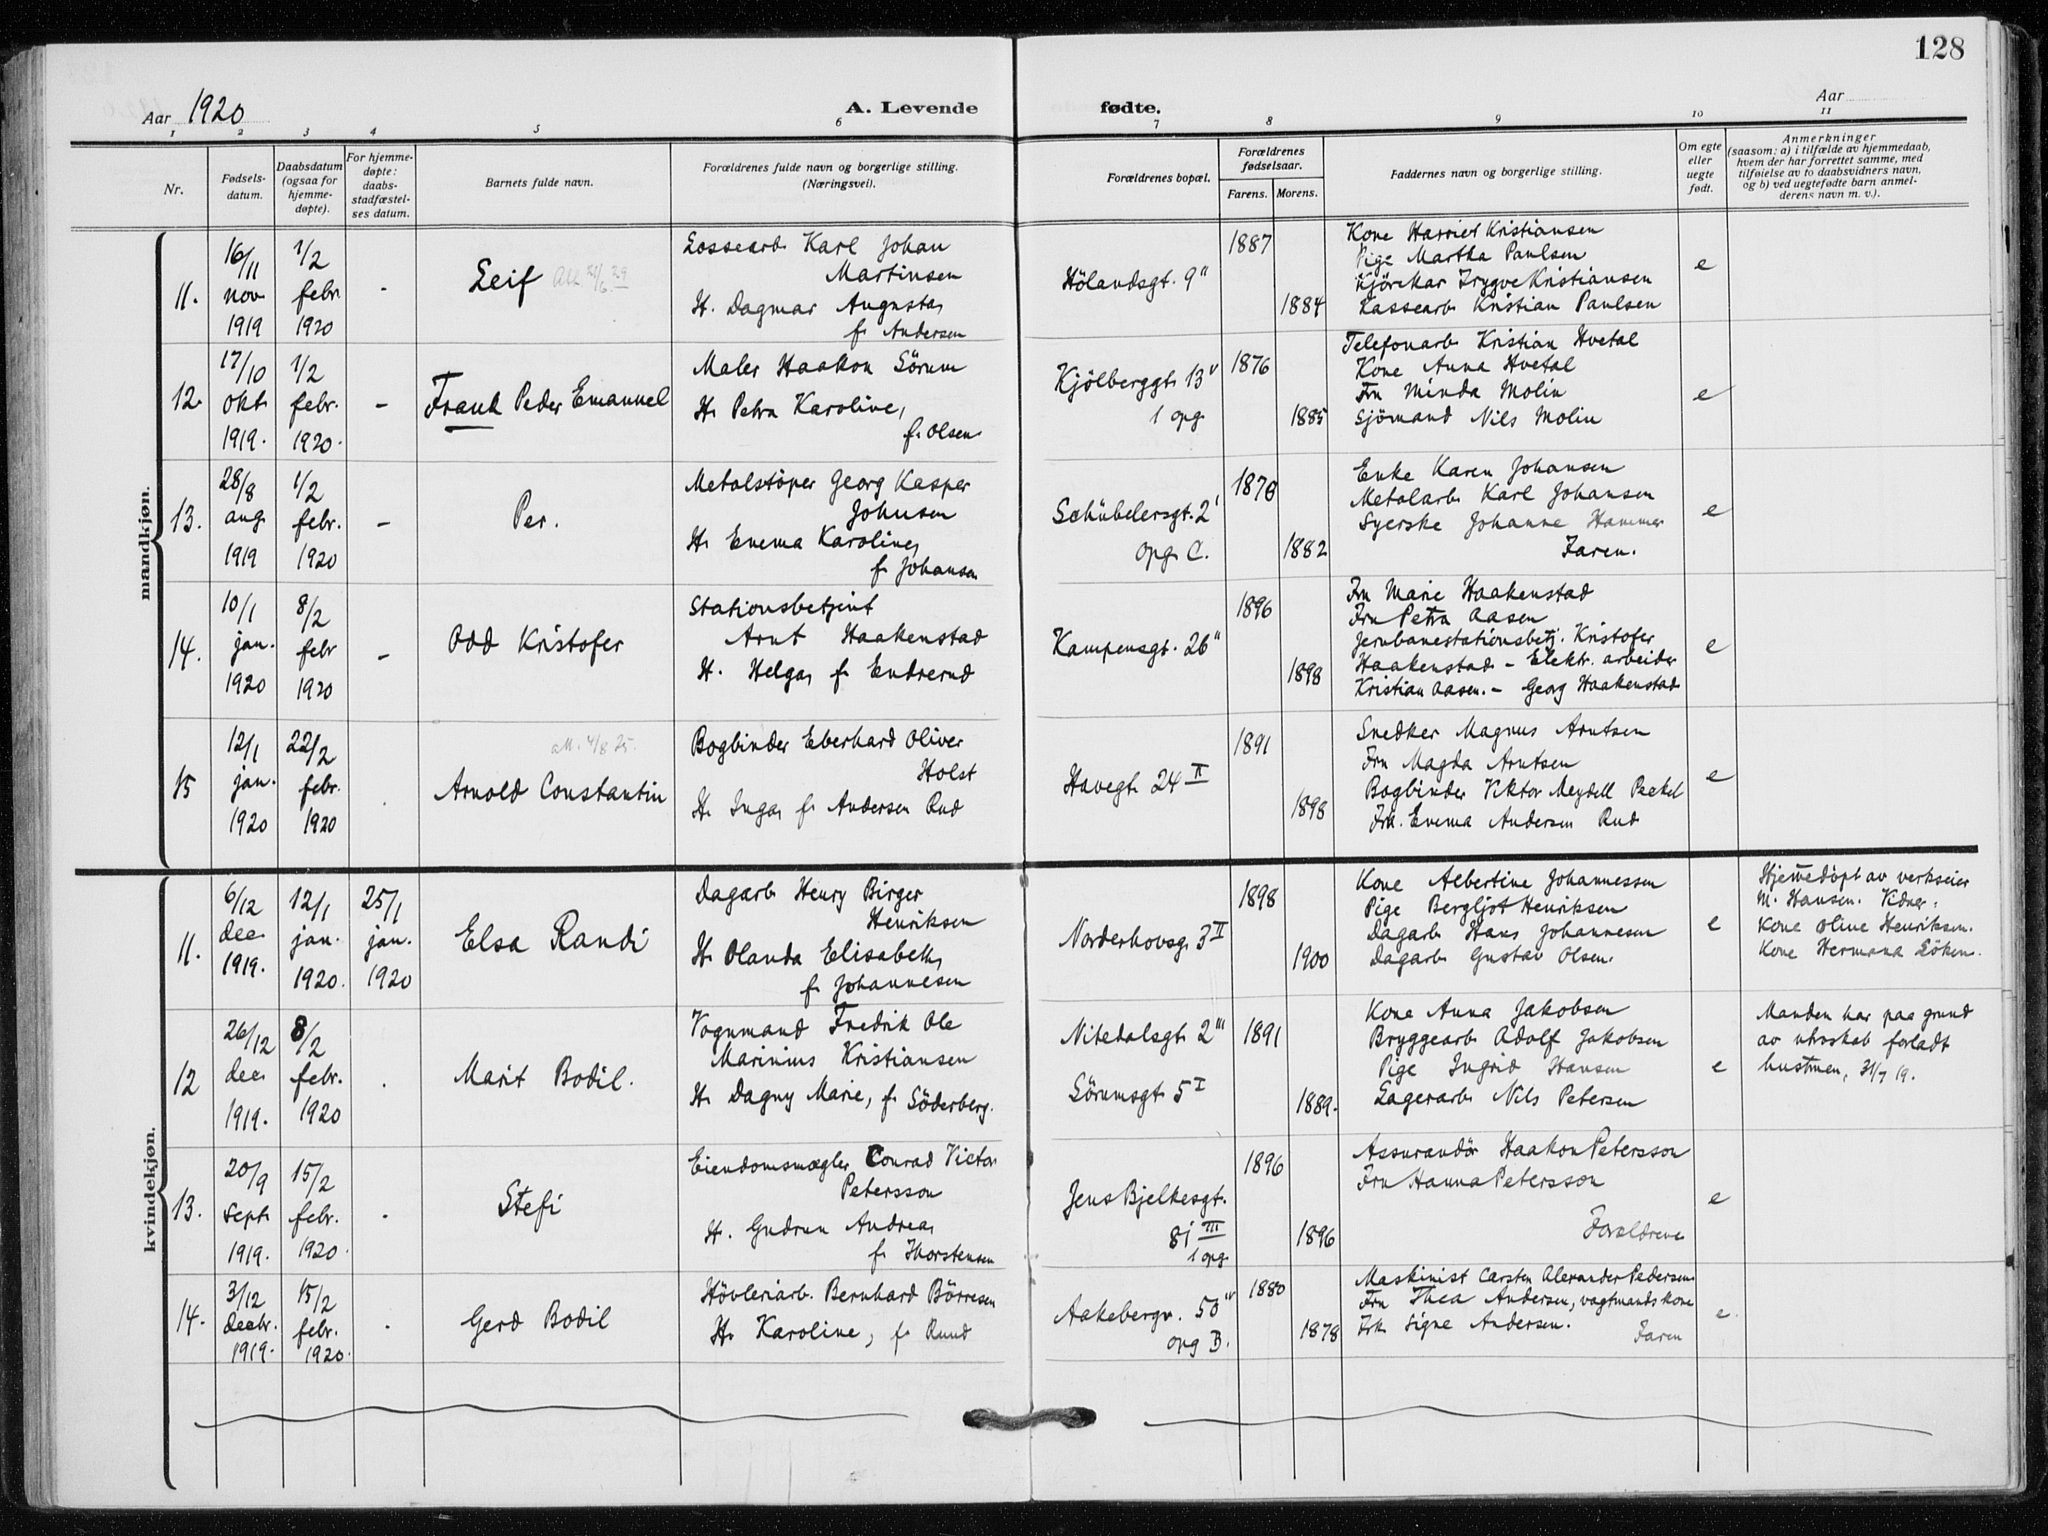 128
Aar 1920
A. Levende fødte.
Aar
1 2 3 4 5 6 7 8 9 10 11
Nr.
Fødsels-
datum.
Daabsdatum
(ogsaa for
hjemme-
døpte).
For hjemme-
døpte:
daabs-
stadfæstel-
ses datum.
Barnets fulde navn.
Forældrenes fulde navn og borgerlige stilling.
(Næringsvei).
Forældrenes bopæl.
Forældrenes
fødselsaar.
Farens. Morens.
Faddernes navn og borgerlige stilling.
Om egte
eller
uegte
født.
Anmerkninger
(saasom: a) i tilfælde av hjemmedaab,
hvem der har forrettet samme, med
tilføielse av to daabsvidners navn,
og b) ved uegtefødte barn anmel-
derens navn m. v.).
mandkjøn.
11.
16/11
nov
1919
1/2
febr
1920
-
Leif
Lossearb. Karl Johan
Martinsen
H. Dagmar Augusta,
f. Andersen
Hölandsgt. 9"
1887
1884
Kone Harriet Kristiansen
Pige Martha Paulsen
Kjörekar Trygve Kristiansen
Lassearb. Kristian Paulsen
e
12.
17/10
okt.
1919.
1/2
febr.
1920.
-
Frank Peder Emanuel
Maler Haakon Sörum
H. Petra Karoline,
f. Olsen
Kjölberggt. 13"
1 opg
1876
1885
Telefonarb. Kristian Hvetal
Kone Anna Hvetal
Fru Minda Molin
Sjömand Nils Molin
e
13.
28/8
aug.
1919
1/2
febr.
1920
-
Per.
Metalstøper Georg Kasper
Johnsen
H. Emma Karoline,
f. Johansen
Schübelersgt. 2'
opg. C.
1876
1882
Enke Karen Johansen
Metalarb. Karl Johansen
Syerske Johanne Hammer
Faren.
e
14.
10/1
jan.
1920
8/2
febr
1920
-
Odd Kristofer
Stationsbetjent
Arnt Haakenstad
H. Helga, f. Endrerud
Kampensgt. 26"
1896
1898
Fru Marie Haakenstad
Fru Petra Aasen
Jernbanestationsbetj. Kristofer
Haakenstad - Elektr. arbeider
Kristian Aasen. - Georg Haakenstad
e
15
12/1
jan.
1920
22/2
febr.
1920
.
att. 4/8 25.
Arnold Constantin
Bogbinder Eberhard Oliver
Holst
H. Inga, f. Andersen Rud
Havegt. 24 II
1891
1898
Snedker Magnus Arntsen
Fru Magda Arntsen
Bogbinder Viktor Meydell
Frk. Emma Andersen Rud
e
kvindekjøn.
11.
6/12
dec.
1919.
12/1
jan.
1920.
25/1
jan.
1920
Elsa Randi
Dagarb. Henry Birger
Henriksen
H. Olanda Elisabeth,
f. Johannesen
Norderhovsg. 3 II
1898
1900
Kone Albertine Johannessen
Pige Bergljot Henriksen
Dagarb. Hans Johannesen
Dagarb. Gustav Olsen.
e
Hjemmedöpt av verkseier
M. Hansen. Vidner:
Kone Oline Henriksen.
Kone Hermana Löken.
12
26/12
dec.
1919.
8/2
febr.
1920
.
Marit Bodil.
Vognmand Fredrik Ole
Marinius Kristiansen
H. Dagny Marie, f. Söderberg.
Nitedalsgt. 2'''
Sörumsgt. 5 I
1891
1889.
Kone Anna Jakobsen
Bryggearb. Adolf Jakobsen
Pige Ingrid Hansen
Lagerarb. Nils Petersen
e
Manden har paa grund
av utroskab forladt
hustruen, 31/7 19.
13.
20/9
sept.
1919.
15/2
febr.
1920.
.
Stefi
Eiendomsmægler Conrad Victor
Petersson
H. Gudrun Andrea,
f. Thorstensen
Jens Bjelkesgt.
8i III
1 opg.
1896
1896
Assurandör Haakon Petersson
Fru Hanna Petersson
Forældrene
e
14.
3/12
decbr.
1919.
15/2
febr.
1920.
.
Gerd Bodil
Hövleriarb. Bernhard Börresen
H. Karoline, f. Ruud
Aakebergv. 50"
opg B.
1880
1878
Maskinist Carsten Alexander Pedersen
Fru Thea Andersen, vagtmandskone
Frk. Signe Andersen.
Faren
e